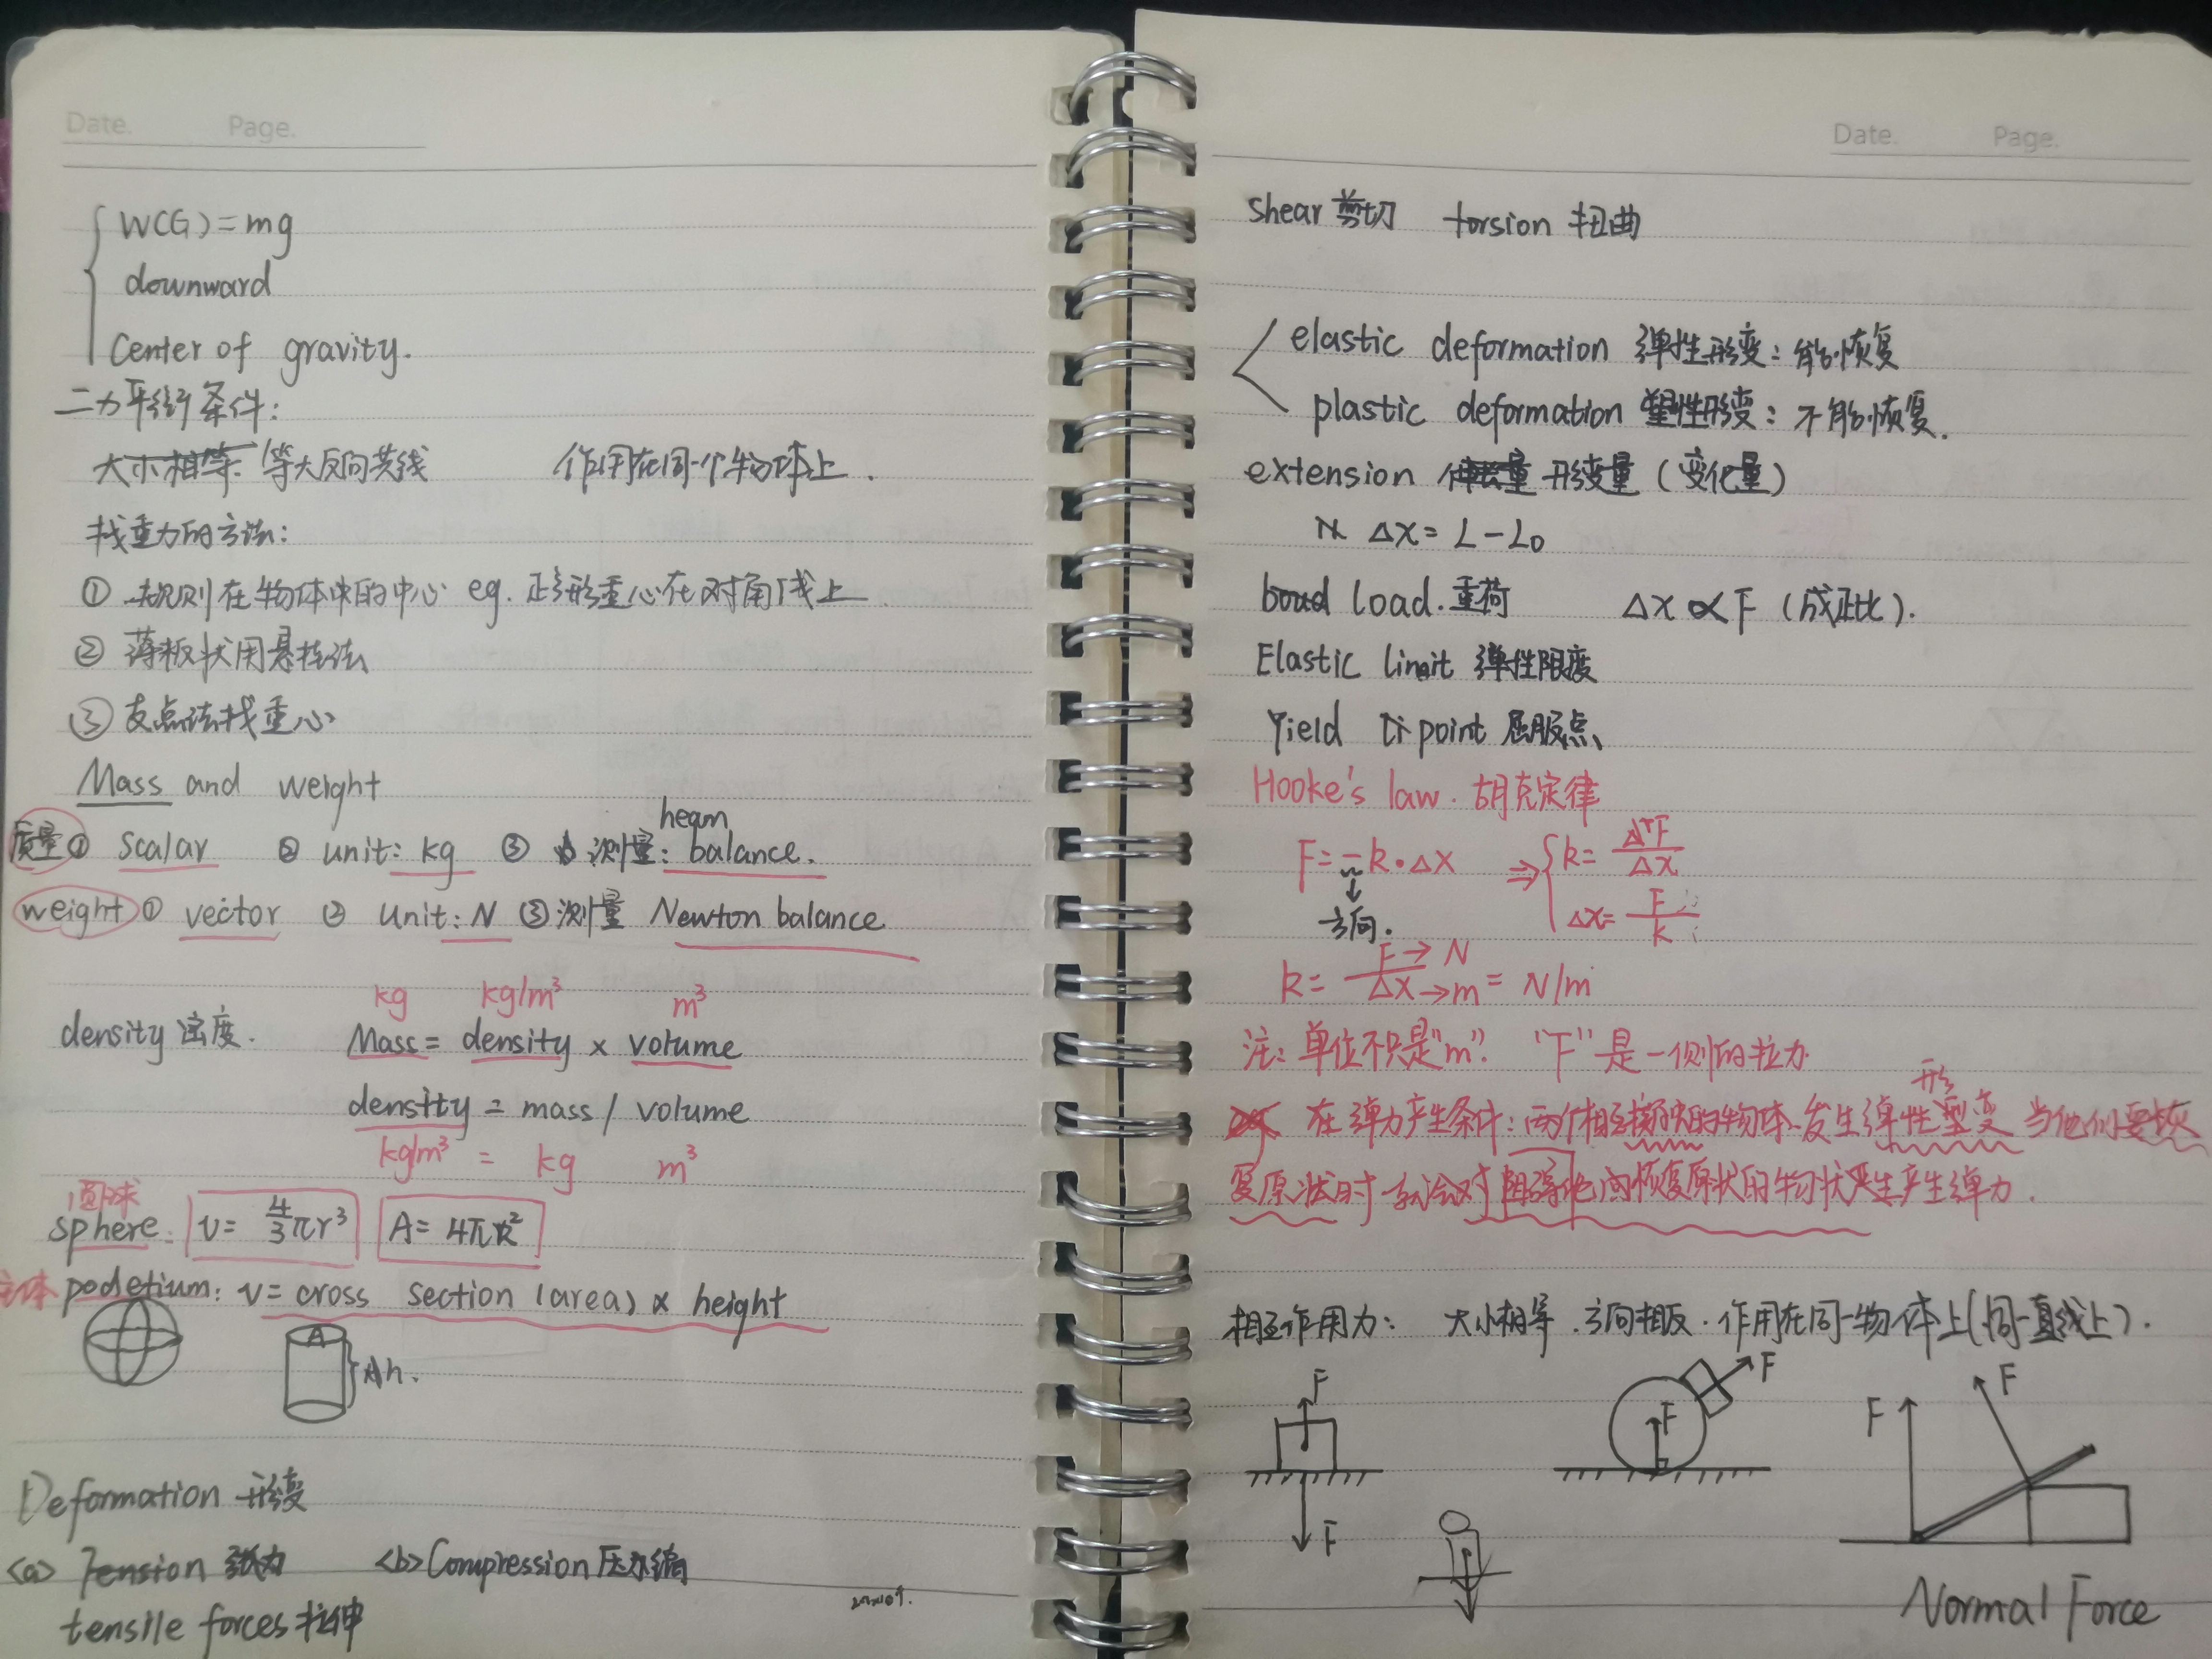 Date. Page.
W(G)=mg
downward
Center of gravity.
二力平衡条件：
大小相等 等大反向共线 作用在同一个物体上.
找重力的方法：
① 规则在物体中的中心 eg. 正方形重心在对角线上
② 薄板状用悬挂法
③ 支点法找重心
Mass and weight
beam
质量① scalar ② unit: kg ③ 测量: balance.
weight ① vector ② unit: N ③测量 Newton balance
kg kg/m³ m³
density 密度. Mass = density x volume
density = mass / volume
kg/m³ = kg m³
圆球
sphere: V= 4/3 πr³ A= 4πR²
主体 podetium: V= cross section (area) x height
A h.
Deformation 形变
<a> Tension 张力 <b> Compression 压缩
tensile forces 拉伸
Date. Page.
shear 剪切 torsion 扭曲
elastic deformation 弹性形变：能恢复
plastic deformation 塑性形变：不能恢复.
extension 伸长量 形变量 (变化量)
Δx= L-L₀
load. 重荷 Δx ∝ F (成正比).
Elastic limit 弹性限度
Yield point 屈服点
Hooke's law. 胡克定律
F= -k·Δx ⇒ k= ΔF/Δx
方向. Δx= F/k
k= F→N / Δx→m = N/m
注：单位不只是"m". "F"是一侧的拉力
形
在弹力产生条件：两个相互接触的物体.发生弹性型变 当他们要恢
复原状时 就会对阻碍他向恢复原状的物状产生产生弹力.
相互作用力： 大小相等.方向相反.作用在同一物体上(同一直线上).
F F F F F F
Normal Force